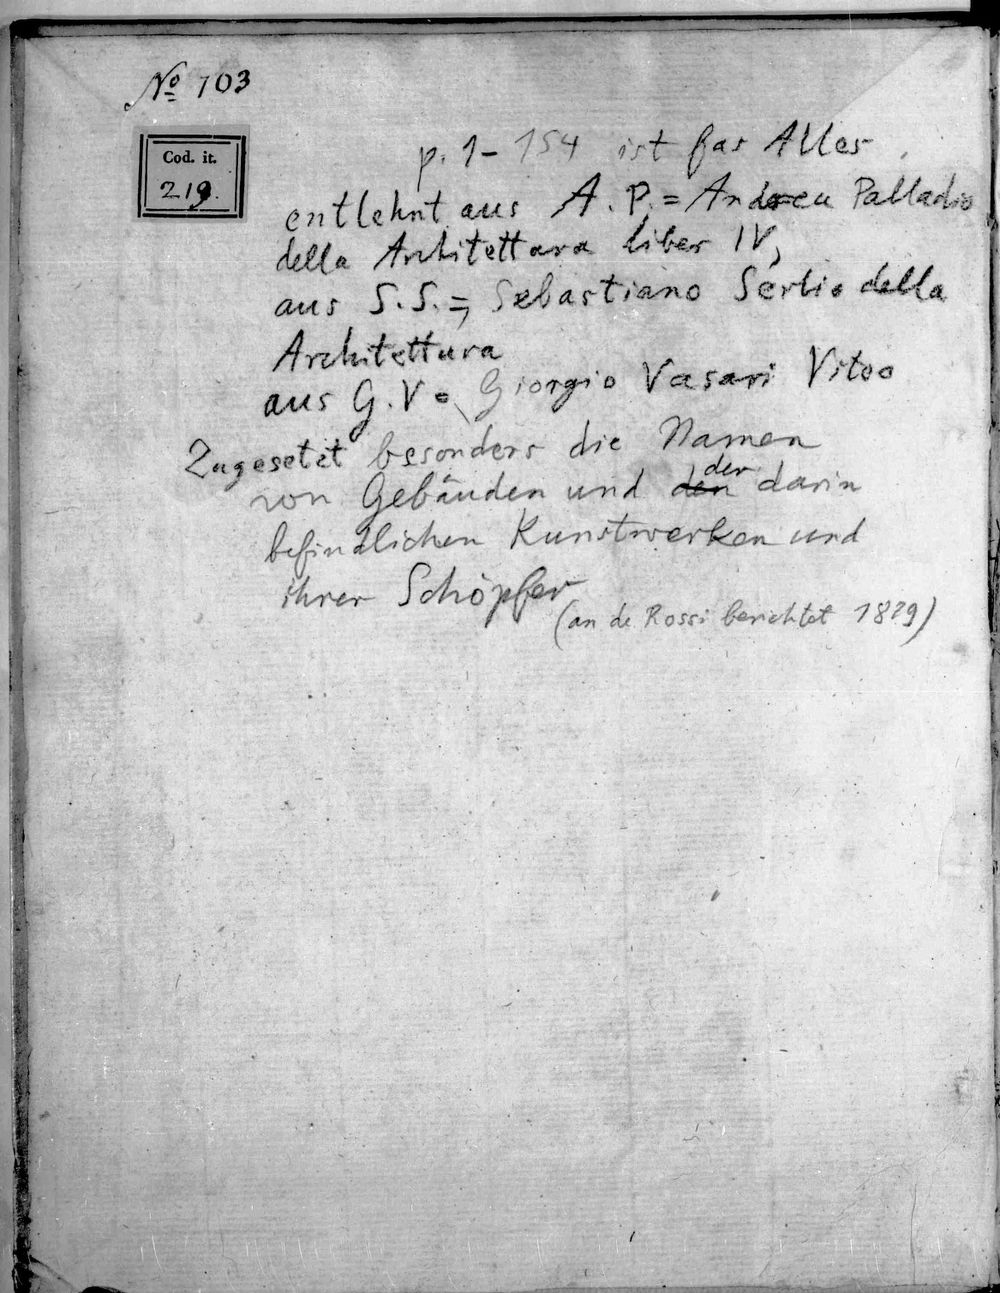 No 103
Cod. it.
219.
p. 1 - 154 ist fas Alles
entlehnt aus A. P. = Andrea Palladio
della Architettura liber IV,
aus S. S. =, Sebastiano Serlio della
Architettura
aus G. V = Giorgio Vasari Vitae
Zugesetzt besonders die Namen
von Gebäuden und den der darin
befindlichen Kunstwerken und
ihrer Schöpfer
(an de Rossi berichtet 1879)